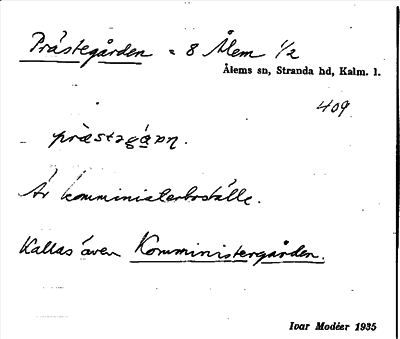 Prästegården = 8 Ålem 1/2
Ålems sn, Stranda hd, Kalm. l.
409
præstəgá̱ɒn.
Är komministerboställe.
Kallas även Komministergården.
Ivar Modéer 1935